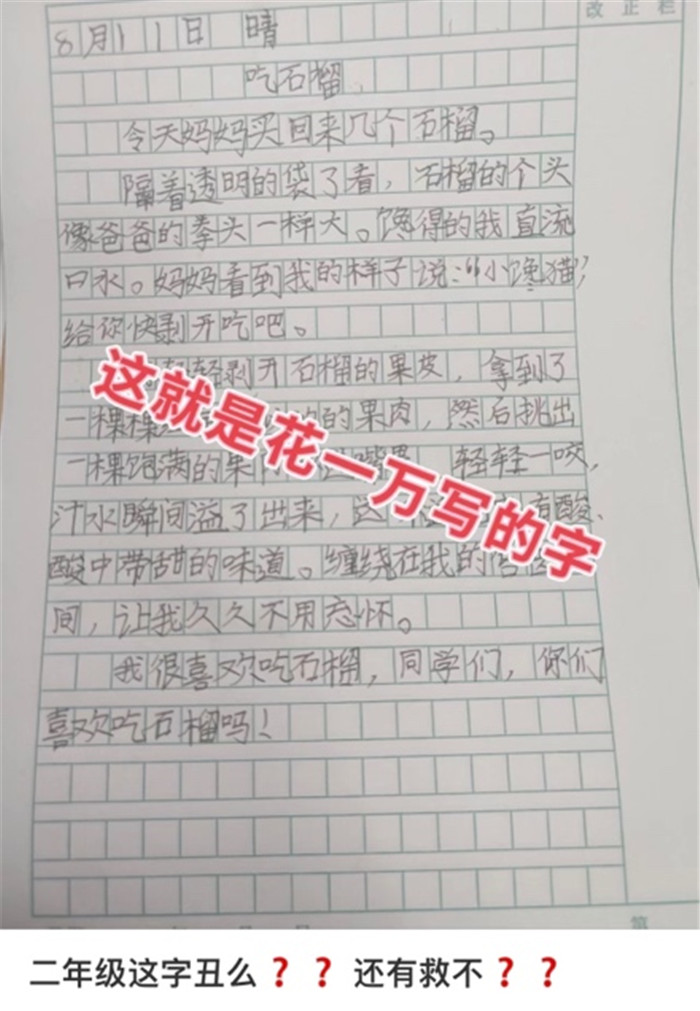 改正栏
8月11日 晴
吃石榴
今天妈妈买回来几个石榴。
隔着透明的袋了看，石榴的个头
像爸爸的拳头一样大。馋得的我直流
口水。妈妈看到我的样子说：“小馋猫”
给你快剥开吃吧。
轻剥开石榴的果皮，拿到了
一棵棵的果肉，然后挑出
一棵饱满的果 轻轻一咬，
汁水瞬间溢了出来，这 有酸、
酸中带甜的味道。缠绕在我的
间，让我久久不用忘怀。
我很喜欢吃石榴，同学们，你们
喜欢吃石榴吗！
这就是花一万写的字
第
二年级这字丑么？？还有救不？？